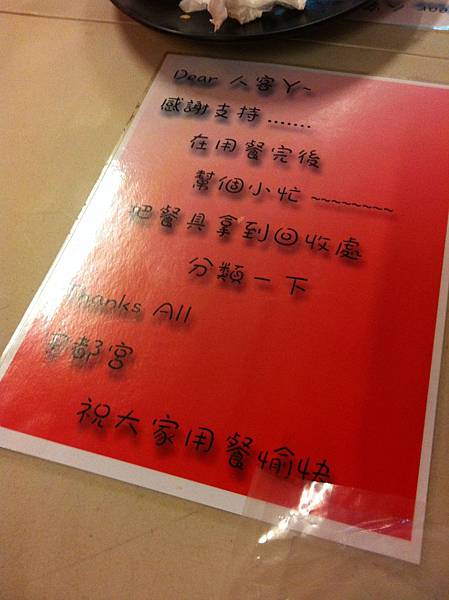 Dear 人客ㄚ~
感謝支持.......
在用餐完後
幫個小忙~~~~~~~~
把餐具拿到回收處
分類一下
Thanks All
宇都宮
祝大家用餐愉快